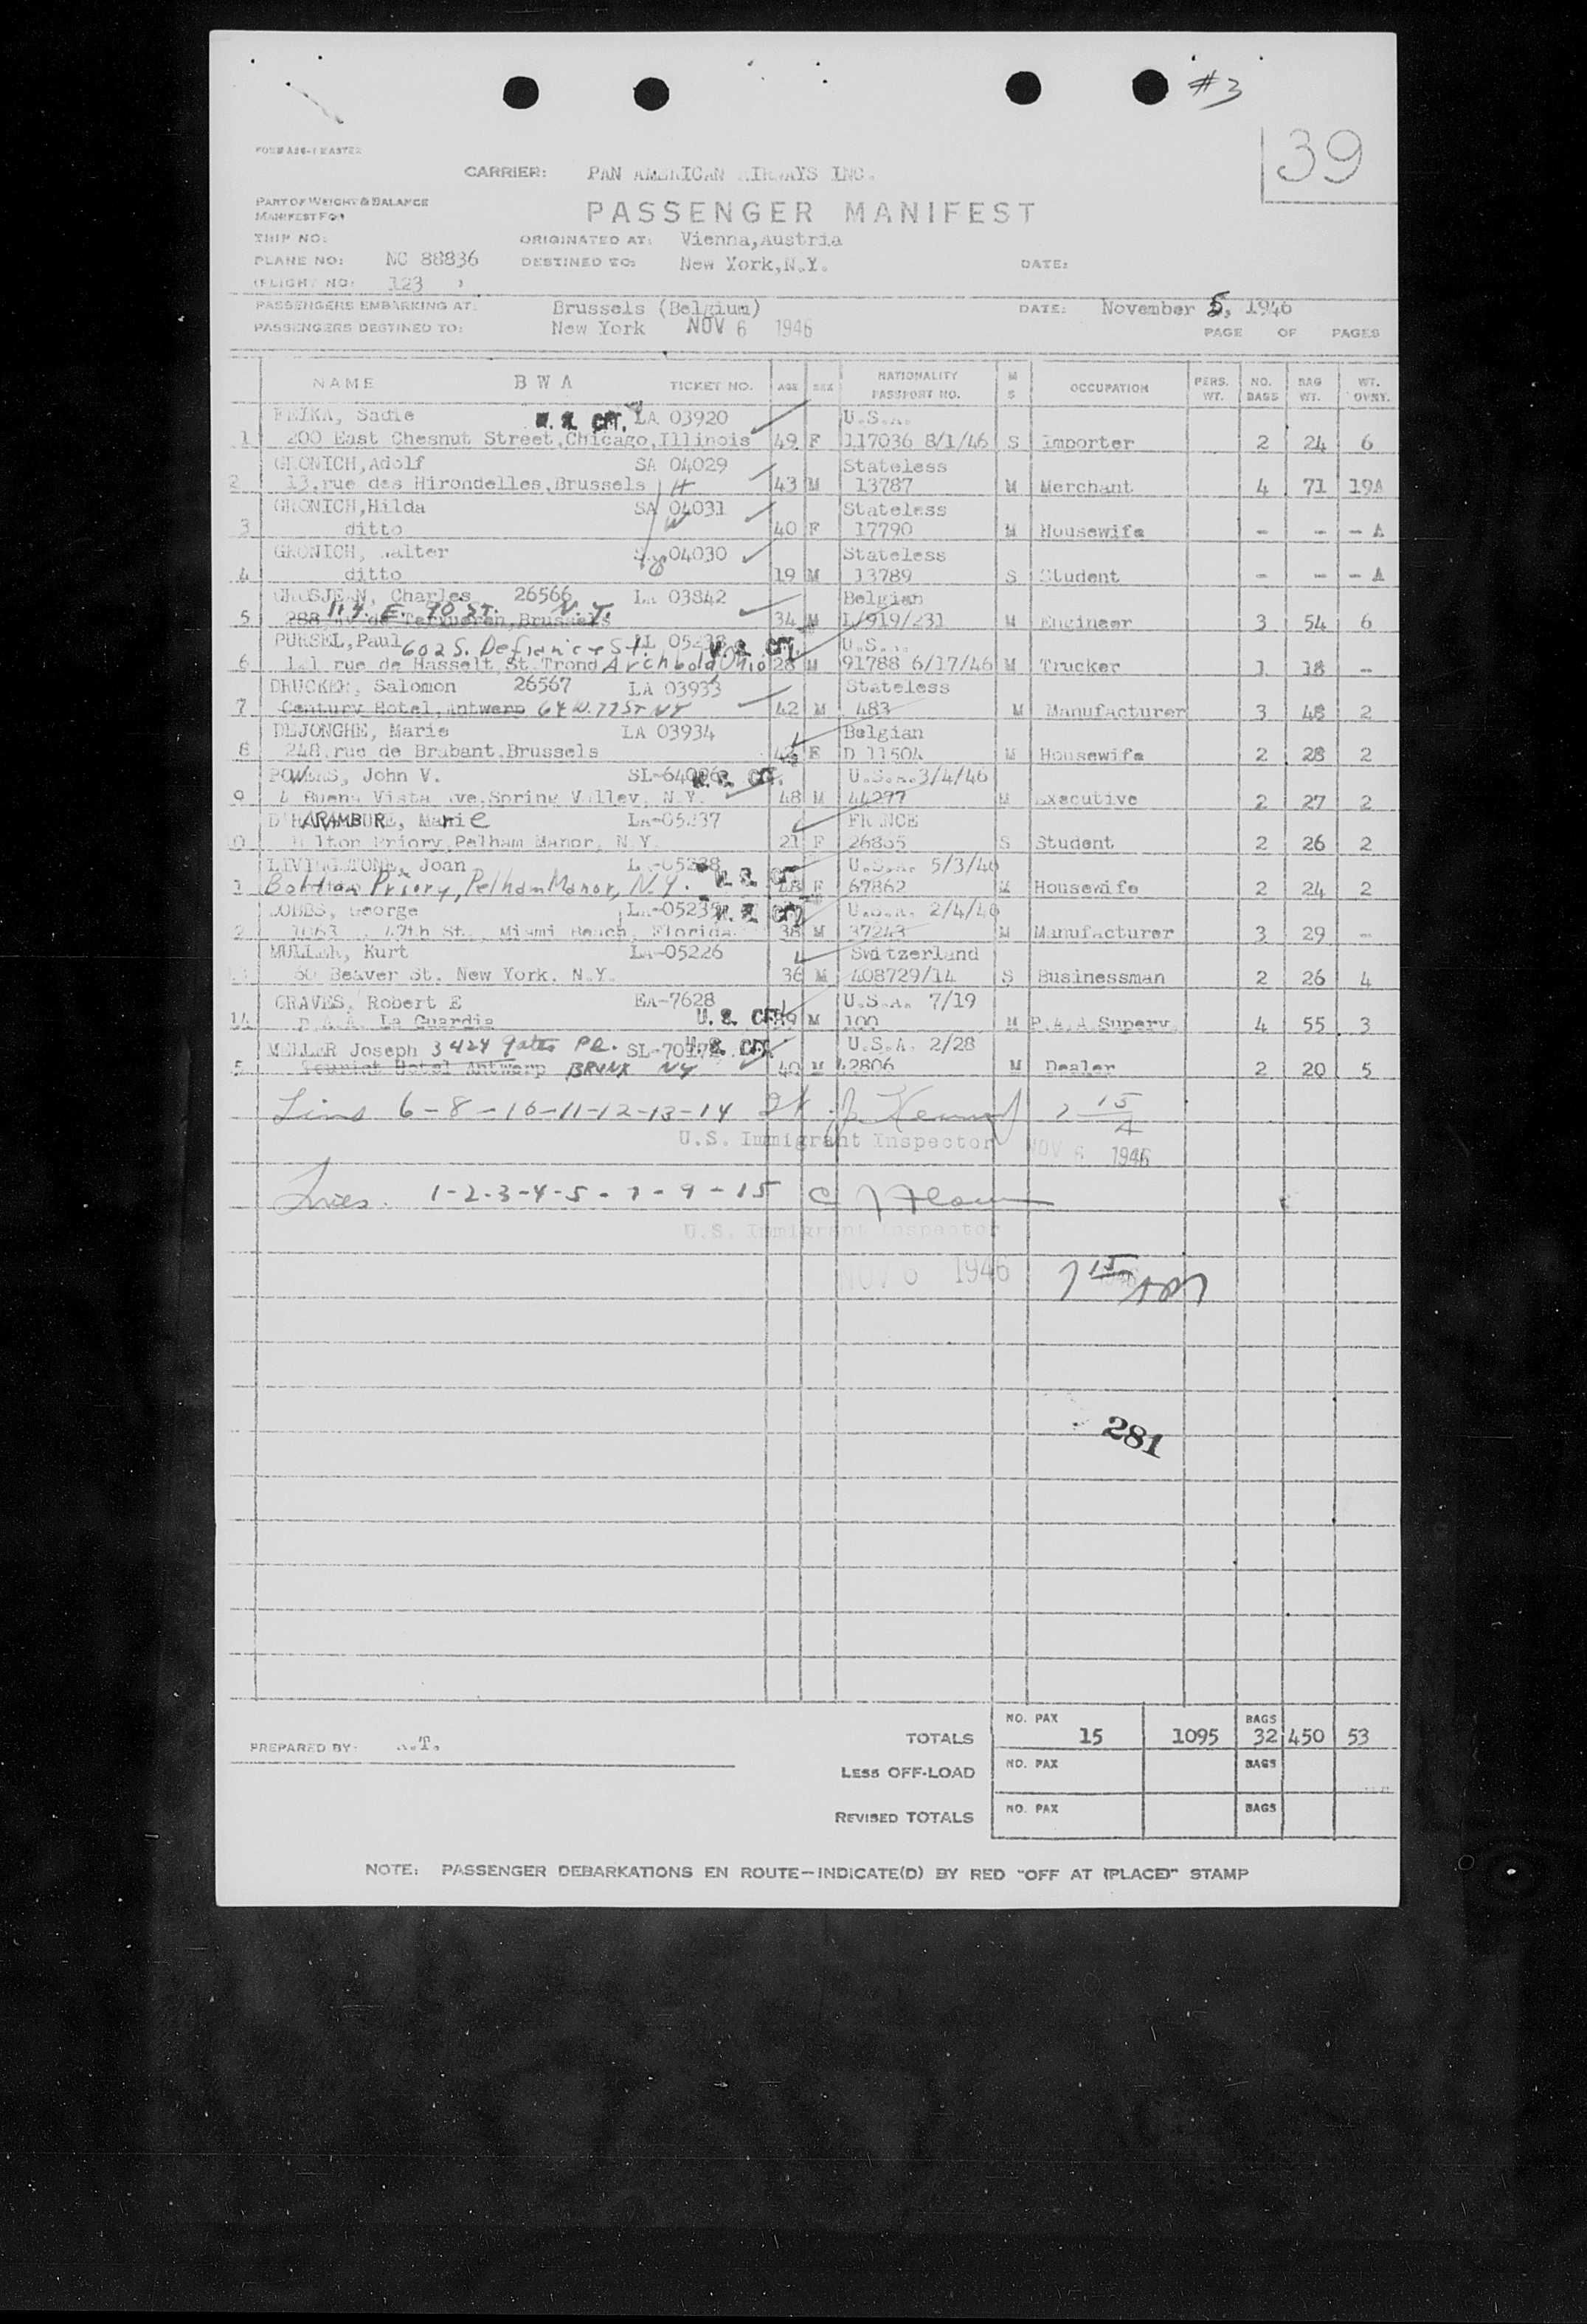 #3
39
FORM A86-1 MASTER
CARRIER: PAN AMERICAN AIRWAYS INC.
PART OF WEIGHT & BALANCE
MANIFEST FOR
PASSENGER MANIFEST
TRIP NO: ORIGINATED AT: Vienna,Austria
PLANE NO: NC 88836 DESTINED TO: New York,N.Y. DATE:
(FLIGHT NO: 123 )
PASSENGERS EMBARKING AT: Brussels (Belgium) DATE: November 5, 1946
PASSENGERS DESTINED TO: New York NOV 6 1946
PAGE OF PAGES
NAME B W A TICKET NO. AGE SEX NATIONALITY PASSPORT NO. M S OCCUPATION PERS. WT. NO. BAGS BAG WT. WT. OVNY.
FEIKA, Sadie LA 03920 U.S.A.
1 200 East Chesnut Street,Chicago,Illinois 49 F 117036 8/1/46 S Importer 2 24 6
GRONICH,Adolf SA 04029 Stateless
2 13,rue des Hirondelles,Brussels H 43 M 13787 M Merchant 4 71 19A
GRONICH,Hilda SA 04031 Stateless
3 ditto W 40 F 17790 M Housewife - - - A
GRONICH, Walter 04030 Stateless
4 ditto 19 M 13789 S Student - - - A
GROSJEAN, Charles 26566 LA 03842 Belgian
114 E. 90 ST. N.Y.
5 288, av de Tervueren,Brussels 34 M L/919/231 M Engineer 3 54 6
PURSEL,Paul 602 S. Defiance St. U.S. CIT. U.S.
6 rue de Hasselt St.Trond Archbold Ohio 28 M 91788 6/17/46 M Trucker 1 18 -
DRUCKER, Salomon 26567 LA 03933 Stateless
7 Century Hotel,Antwerp 64 W. 77 ST NY 42 M 483 M Manufacturer 3 48 2
DEJONGHE, Marie LA 03934 Belgian
8 248,rue de Brabant,Brussels F D 11504 M Housewife 2 28 2
POWERS, John V. U.S.A.3/4/46
9 4 Buena Vista Ave,Spring Valley, N.Y. 48 M 44297 M Executive 2 27 2
D'HARAMBURE, Marie LA-05237 FRANCE
10 Priory,Pelham Manor, N.Y. 21 F 26835 S Student 2 26 2
LIVINGSTONE, Joan U.S.A. 5/3/46
11 Priory, Pelham Manor, N.Y. 48 F 67862 M Housewife 2 24 2
George U.S.A. 2/4/46
12 47th St., Miami Beach, Florida 38 M 37243 M Manufacturer 3 29 -
MULLER, Kurt LA-05226 Switzerland
13 60 Beaver St. New York, N.Y. 36 M 408729/14 S Businessman 2 26 4
GRAVES, Robert E EA-7628 U.S.A. 7/19
14 P.A.A. La Guardia U. S. CIT. M 100 M P.A.A.Superv. 4 55 3
MELLER Joseph 3424 Gates Pl. U.S.A. 2/28
15 Tourist Hotel Antwerp BRONX NY 40 M 42806 M Dealer 2 20 5
Lines 6-8-10-11-12-13-14
U.S. Immigrant Inspector NOV 6 1946
Lines. 1-2-3-4-5-7-9-15
U.S. Immigrant Inspector
NOV 6 1946 7 15 AM
281
TOTALS NO. PAX 15 1095 BAGS 32 450 53
PREPARED BY:
LESS OFF-LOAD NO. PAX BAGS
REVISED TOTALS NO. PAX BAGS
NOTE: PASSENGER DEBARKATIONS EN ROUTE—INDICATE(D) BY RED "OFF AT (PLACE)" STAMP